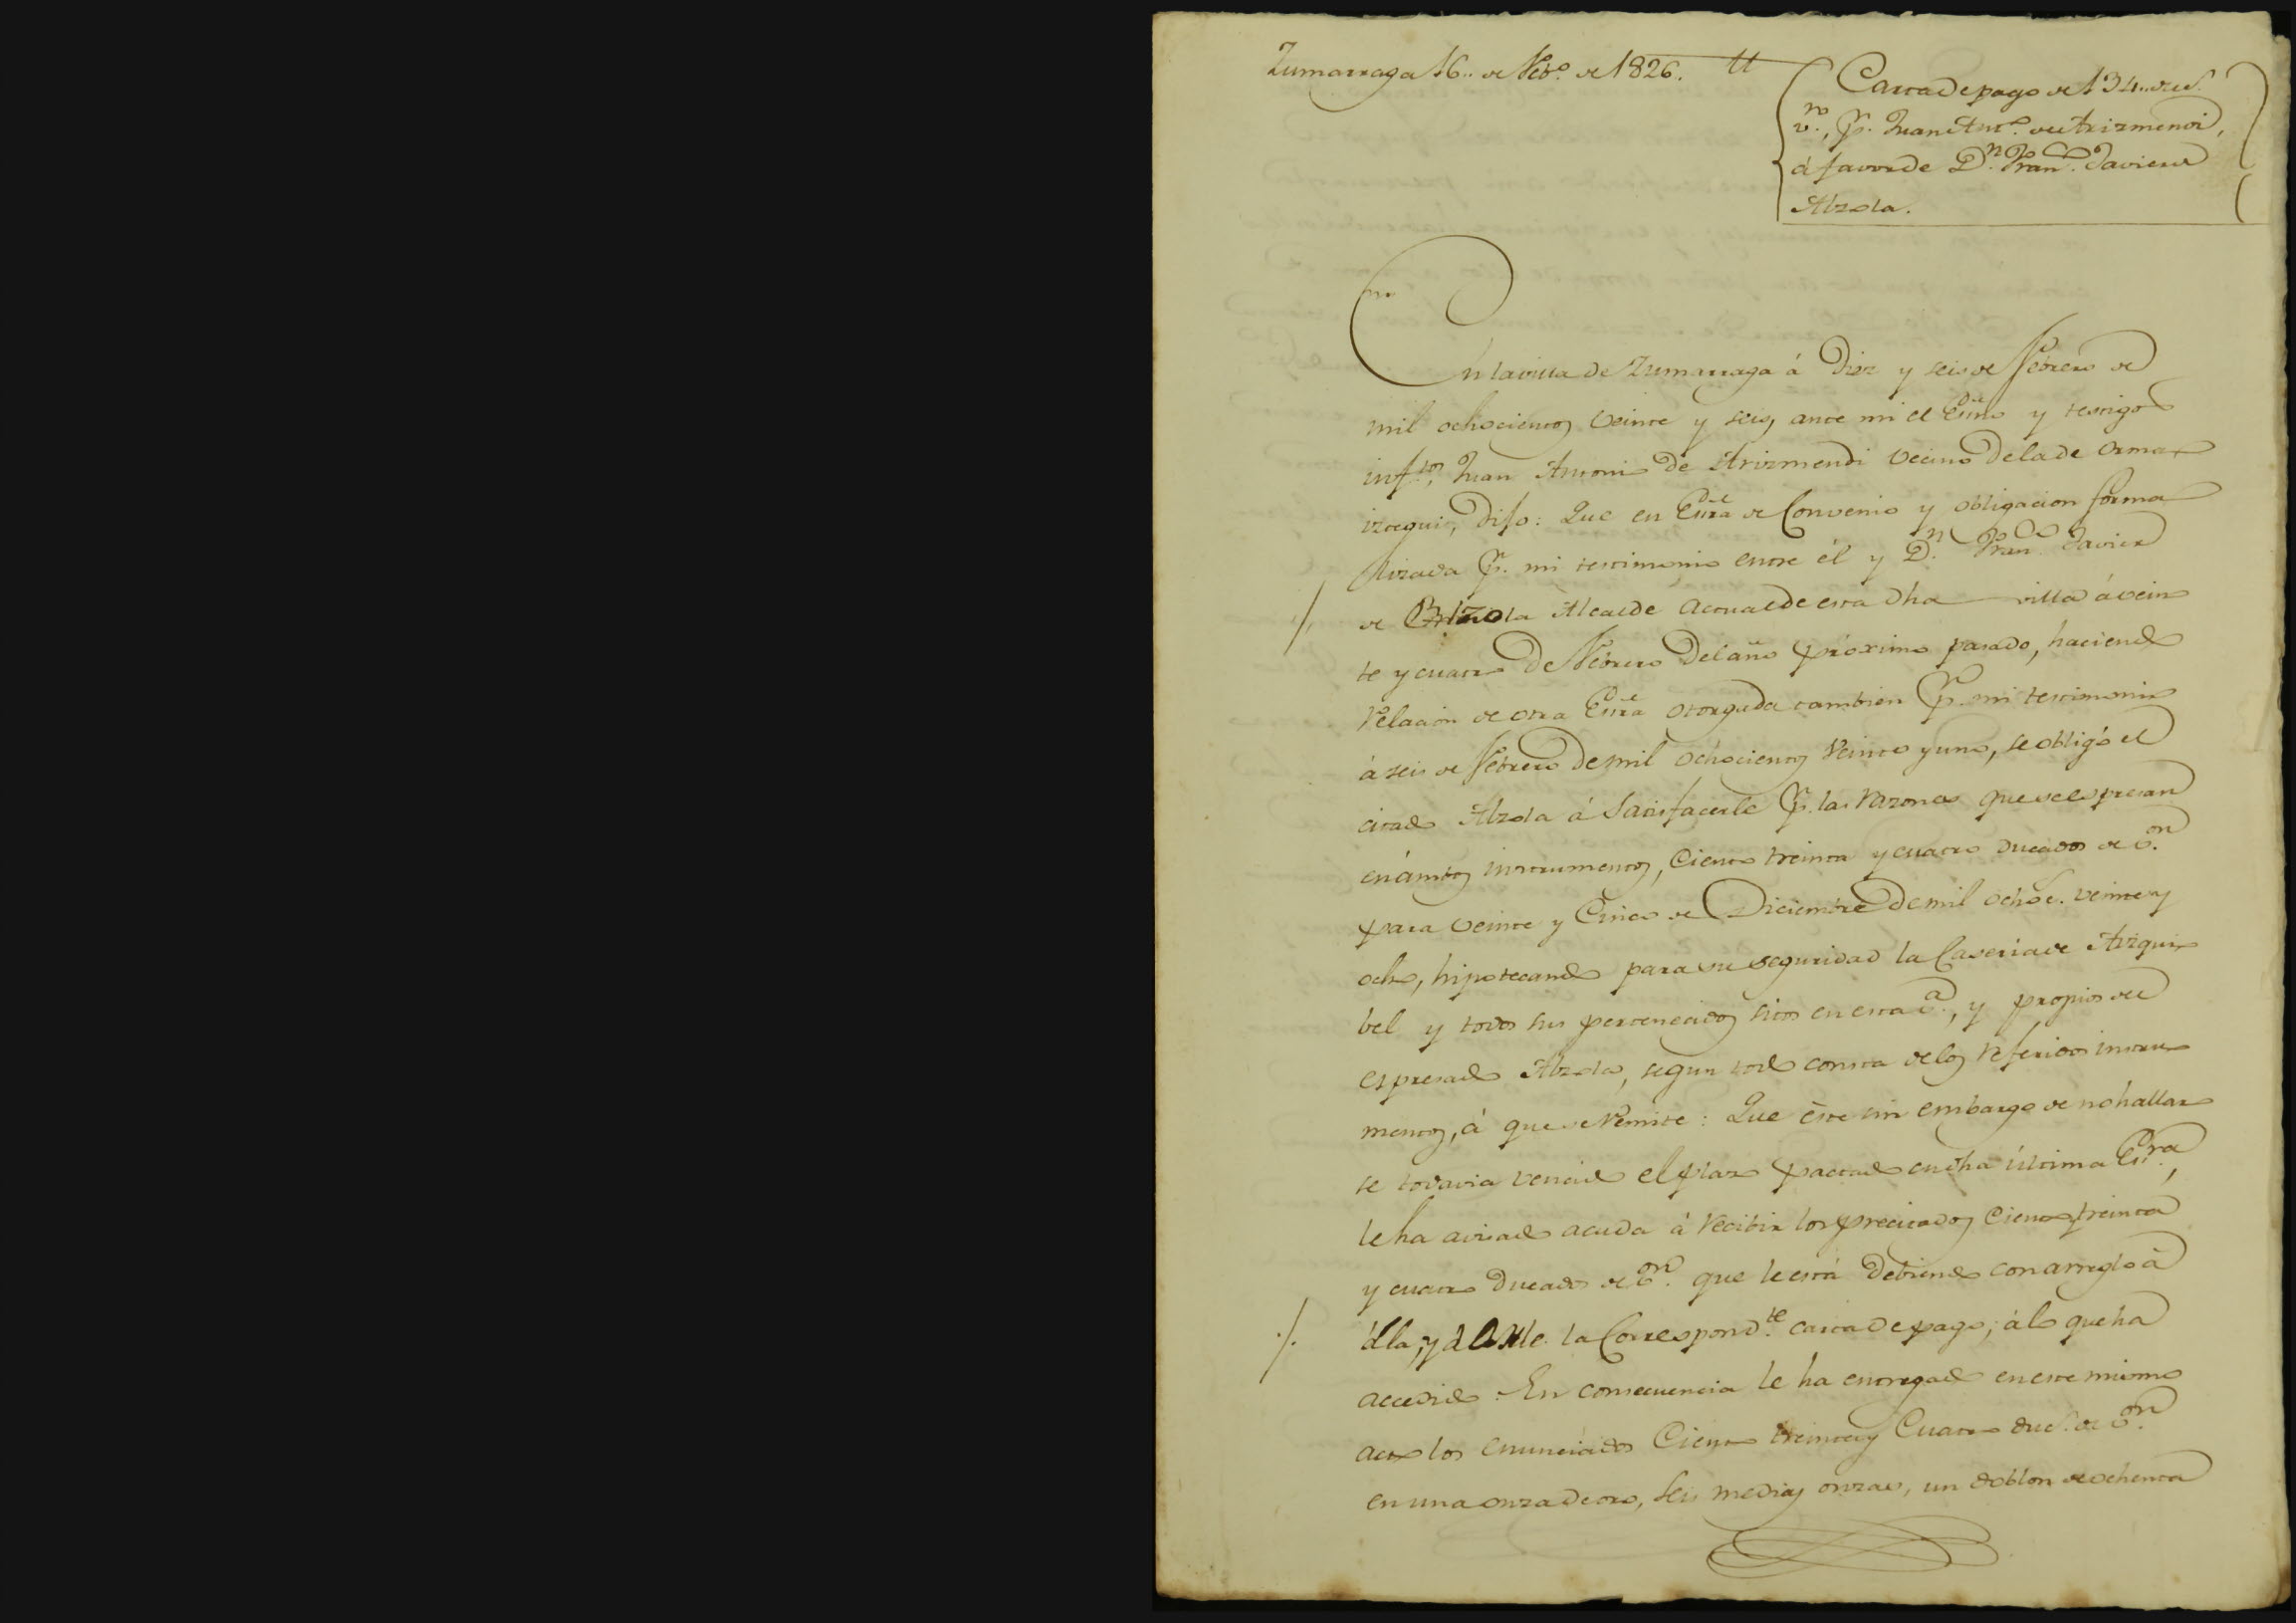 Zumarraga 16.. de Feb.º de 1826.
Carta de pago de 134.. duc.s
v.n, p.r Juan Ant.º de Arizmendi,
á favor de D.n Fran.co Javier de
Alzola.
En la villa de Zumarraga á Diez y seis de Febrero de
mil ochocientos veinte y seis, ante mi el Esno y testigos
inf.tos, Juan Antonio de Arizmendi vecino de la de Orma-
iztegui, dijo: Que en Esra de Convenio y obligacion forma-
lizada p.r mi testimonio entre él y D.n Fran.co Javier
de Alzola Alcalde actual de esta dha villa á vein-
te y cuatro de Febrero del año próximo pasado, haciendo
relacion de otra Esra otorgada tambien p.r mi testimonio
á seis de Febrero de mil ochocientos veinte y uno, se obligó el
citado Alzola á satisfacerle p.r las razones que se espresan
en ámbos instrumentos, Ciento treinta y cuatro ducados de v.on
para veinte y Cinco de Diciembre de mil ochoc.s veinte y
ocho, hipotecando para su seguridad la Caseria de Aizqui-
bel y todos sus pertenecidos sitos en esta v.a, y propios del
espresado Alzola, segun todo consta de los referidos instru-
mentos, á que se remite: Que éste sin embargo de no hallar-
se todavia vencido el plazo pactado en dha última Es.ra,
le ha avisado acuda á recibir los precitados Ciento treinta
y cuatro Ducados de v.on que le está debiendo con arreglo á
élla, y darle la Correspond.te carta de pago; á lo que ha
accedido. En consecuencia le ha entregado en este mismo
acto los enunciados Ciento treinta y Cuatro duc.s de v.on
en una onza de oro, seis medias onzas, un doblon de ochenta